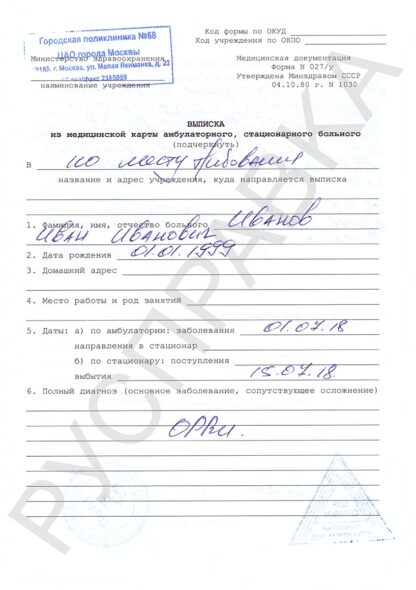 Городская поликлиника №68
ЦАО города Москвы
г. Москва, ул. Малая Якиманка, д. 22
2385059
Министерство здравоохранения
наименование учреждения
Код формы по ОКУД
Код учреждения по ОКПО
Медицинская документация
Форма N 027/у
Утверждена Минздравом СССР
04.10.80 г. N 1030
ВЫПИСКА
из медицинской карты амбулаторного, стационарного больного
(подчеркнуть)
В по месту требования
название и адрес учреждения, куда направляется выписка
1. Фамилия, имя, отчество больного Иванов
Иван Иванович
2. Дата рождения 01.01.1999
3. Домашний адрес
4. Место работы и род занятий
5. Даты: а) по амбулатории: заболевания 01.07.18
направления в стационар
б) по стационару: поступления
выбытия 15.07.18
6. Полный диагноз (основное заболевание, сопутствующее осложнение)
ОРВИ.
РУСПРАВКА